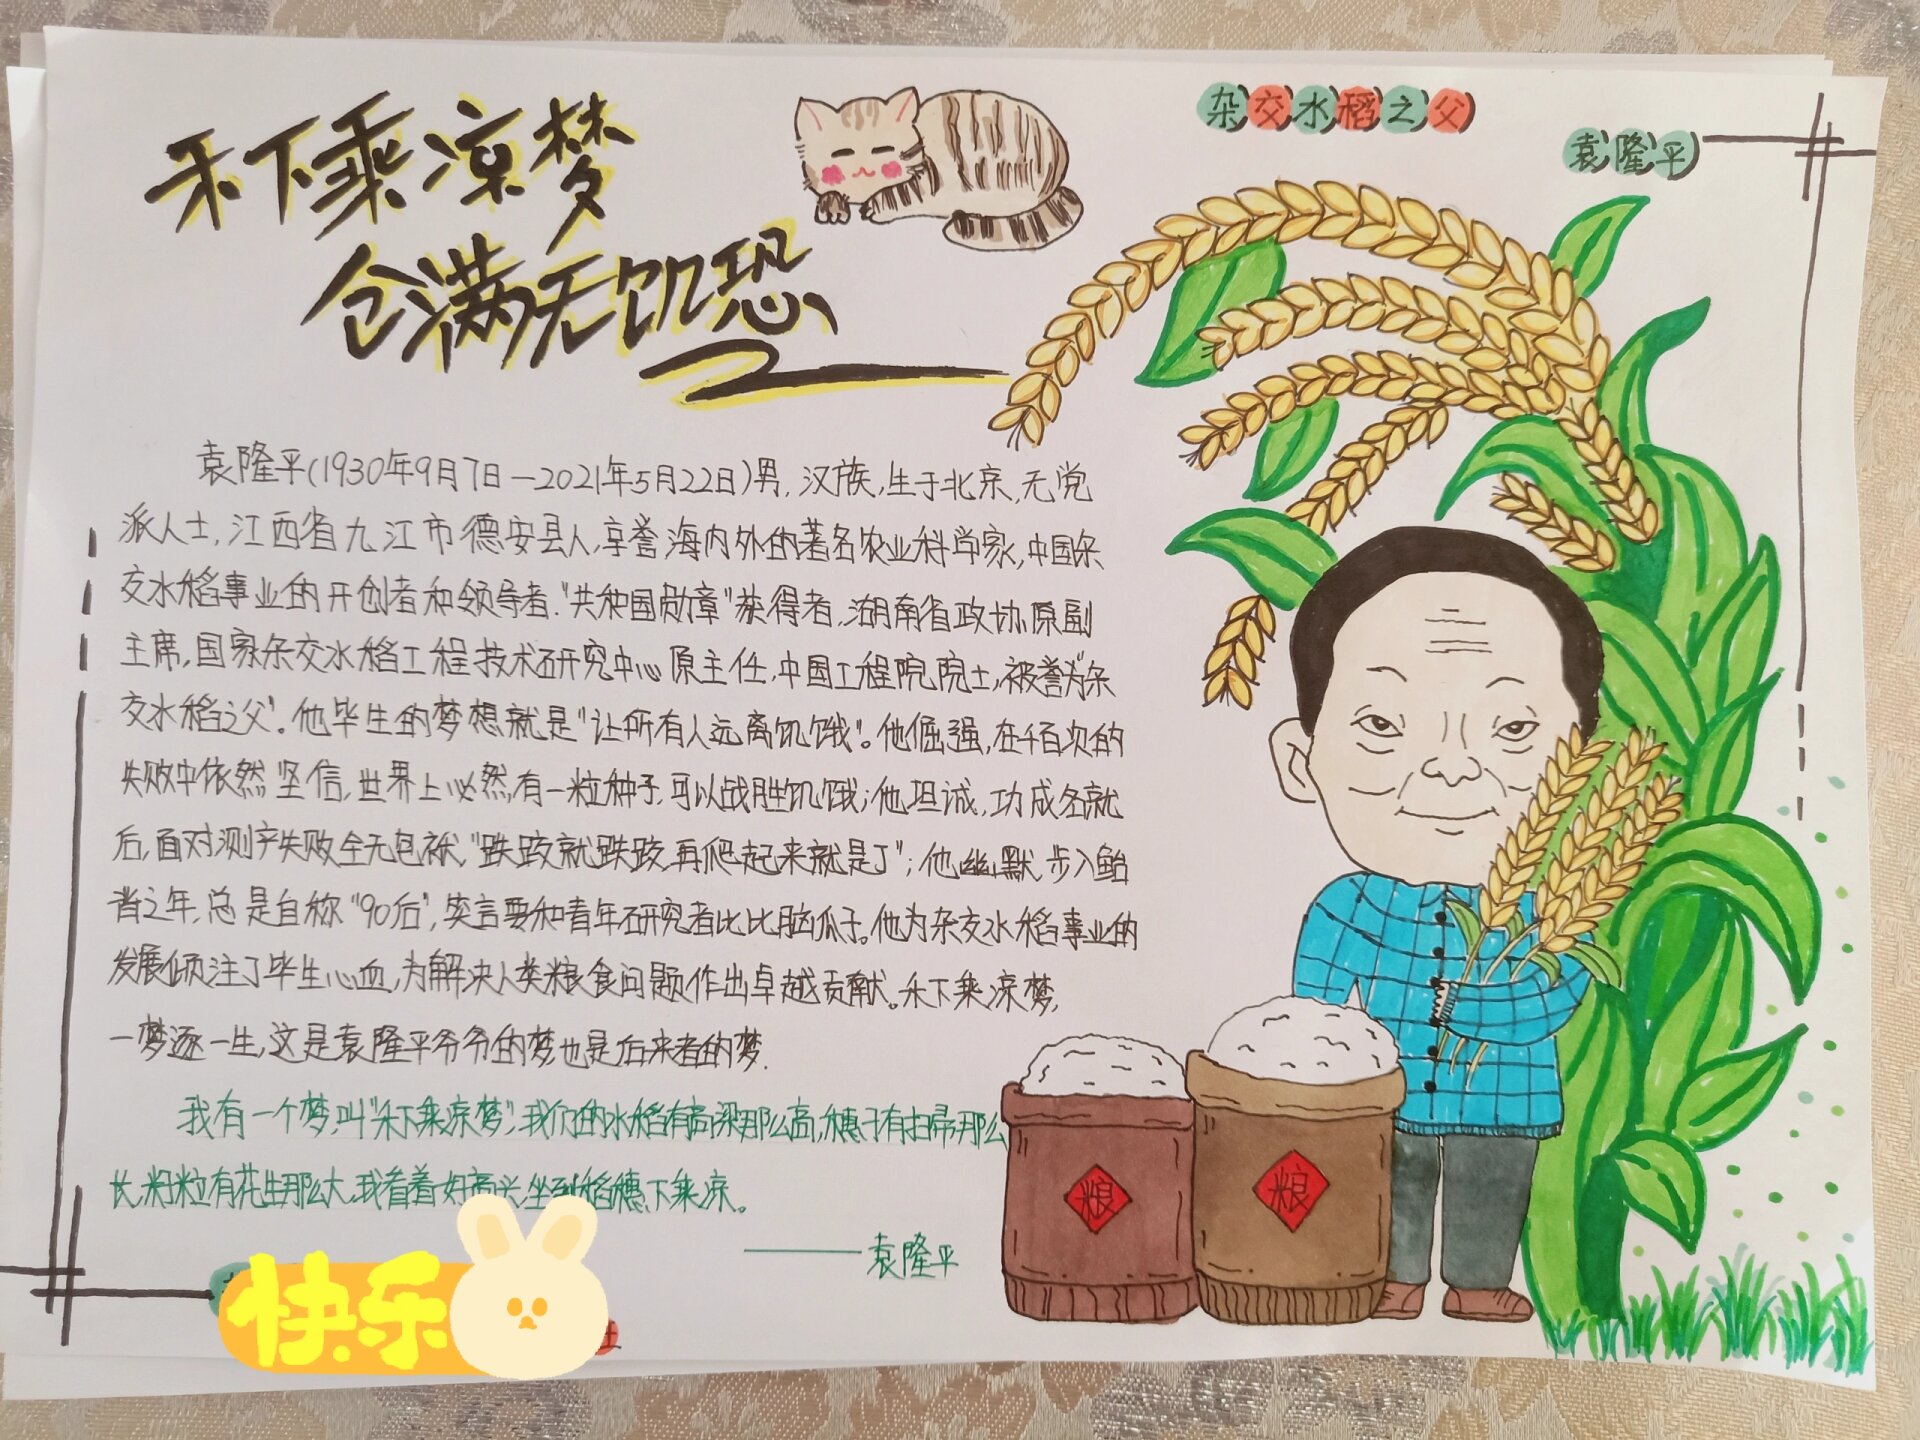 禾下乘凉梦
仓满无饥恐
杂交水稻之父
袁隆平
袁隆平(1930年9月7日—2021年5月22日)男,汉族,生于北京,无党
派人士,江西省九江市德安县人,享誉海内外的著名农业科学家,中国杂
交水稻事业的开创者和领导者.“共和国勋章”获得者,湖南省政协原副
主席,国家杂交水稻工程技术研究中心原主任,中国工程院院士,被誉为“杂
交水稻之父”。他毕生的梦想就是“让所有人远离饥饿”。他倔强,在千百次的
失败中依然坚信,世界上必然有一粒种子,可以战胜饥饿;他坦诚,功成名就
后,面对测产失败全无包袱,“跌跤就跌跤,再爬起来就是了”;他幽默,步入鲐
背之年,总是自称“90后”,笑言要和青年研究者比比脑瓜子。他为杂交水稻事业的
发展倾注了毕生心血,为解决人类粮食问题作出卓越贡献。禾下乘凉梦,
一梦逐一生,这是袁隆平爷爷的梦,也是后来者的梦.
我有一个梦,叫“禾下乘凉梦”,我们的水稻有高粱那么高,穗子有扫帚那么
长,籽粒有花生那么大,我看着好高兴,坐到稻穗下乘凉。
——袁隆平
粮
粮
快乐